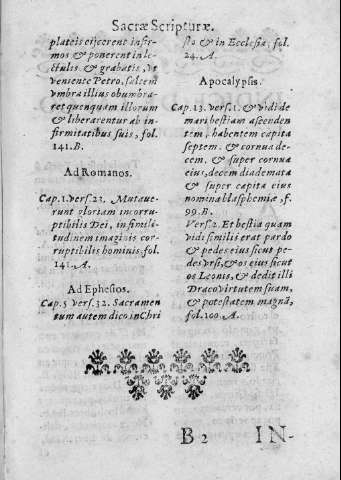 Sacræ Scripturæ.
plateis eijcerent infir-
mos & ponerent in le-
ctulis & grabatis, vt
veniente Petro, saltem
vmbra illius obumbra-
ret quenquam illorum
& liberarentur ab in-
firmitatibus suis, fol.
141.B.
Ad Romanos.
Cap.1.Vers.23. Mutaue-
runt gloriam incorru-
ptibilis Dei, in simili-
tudinem imaginis cor-
ruptibilis hominis, fol.
141.A.
Ad Ephesios.
Cap.5 vers.32. Sacramen
tum autem dico in Chri
sto & in Ecclesia, fol.
24.A.
Apocalypsis.
Cap.13. vers.1. & vidi de
mari bestiam ascenden
tem, habentem capita
septem. & cornua de-
cem. & super cornua
eius, decem diademata
& super capita eius
nomina blasphemiæ, f.
99.B.
Vers.2. Et bestia quam
vidi similis erat pardo
& pedes eius sicut pe-
des vrsi, & os eius sicut
os Leonis, & dedit illi
Draco virtutem suam,
& potestatem magnã,
fol.100.A.
B 2 IN-